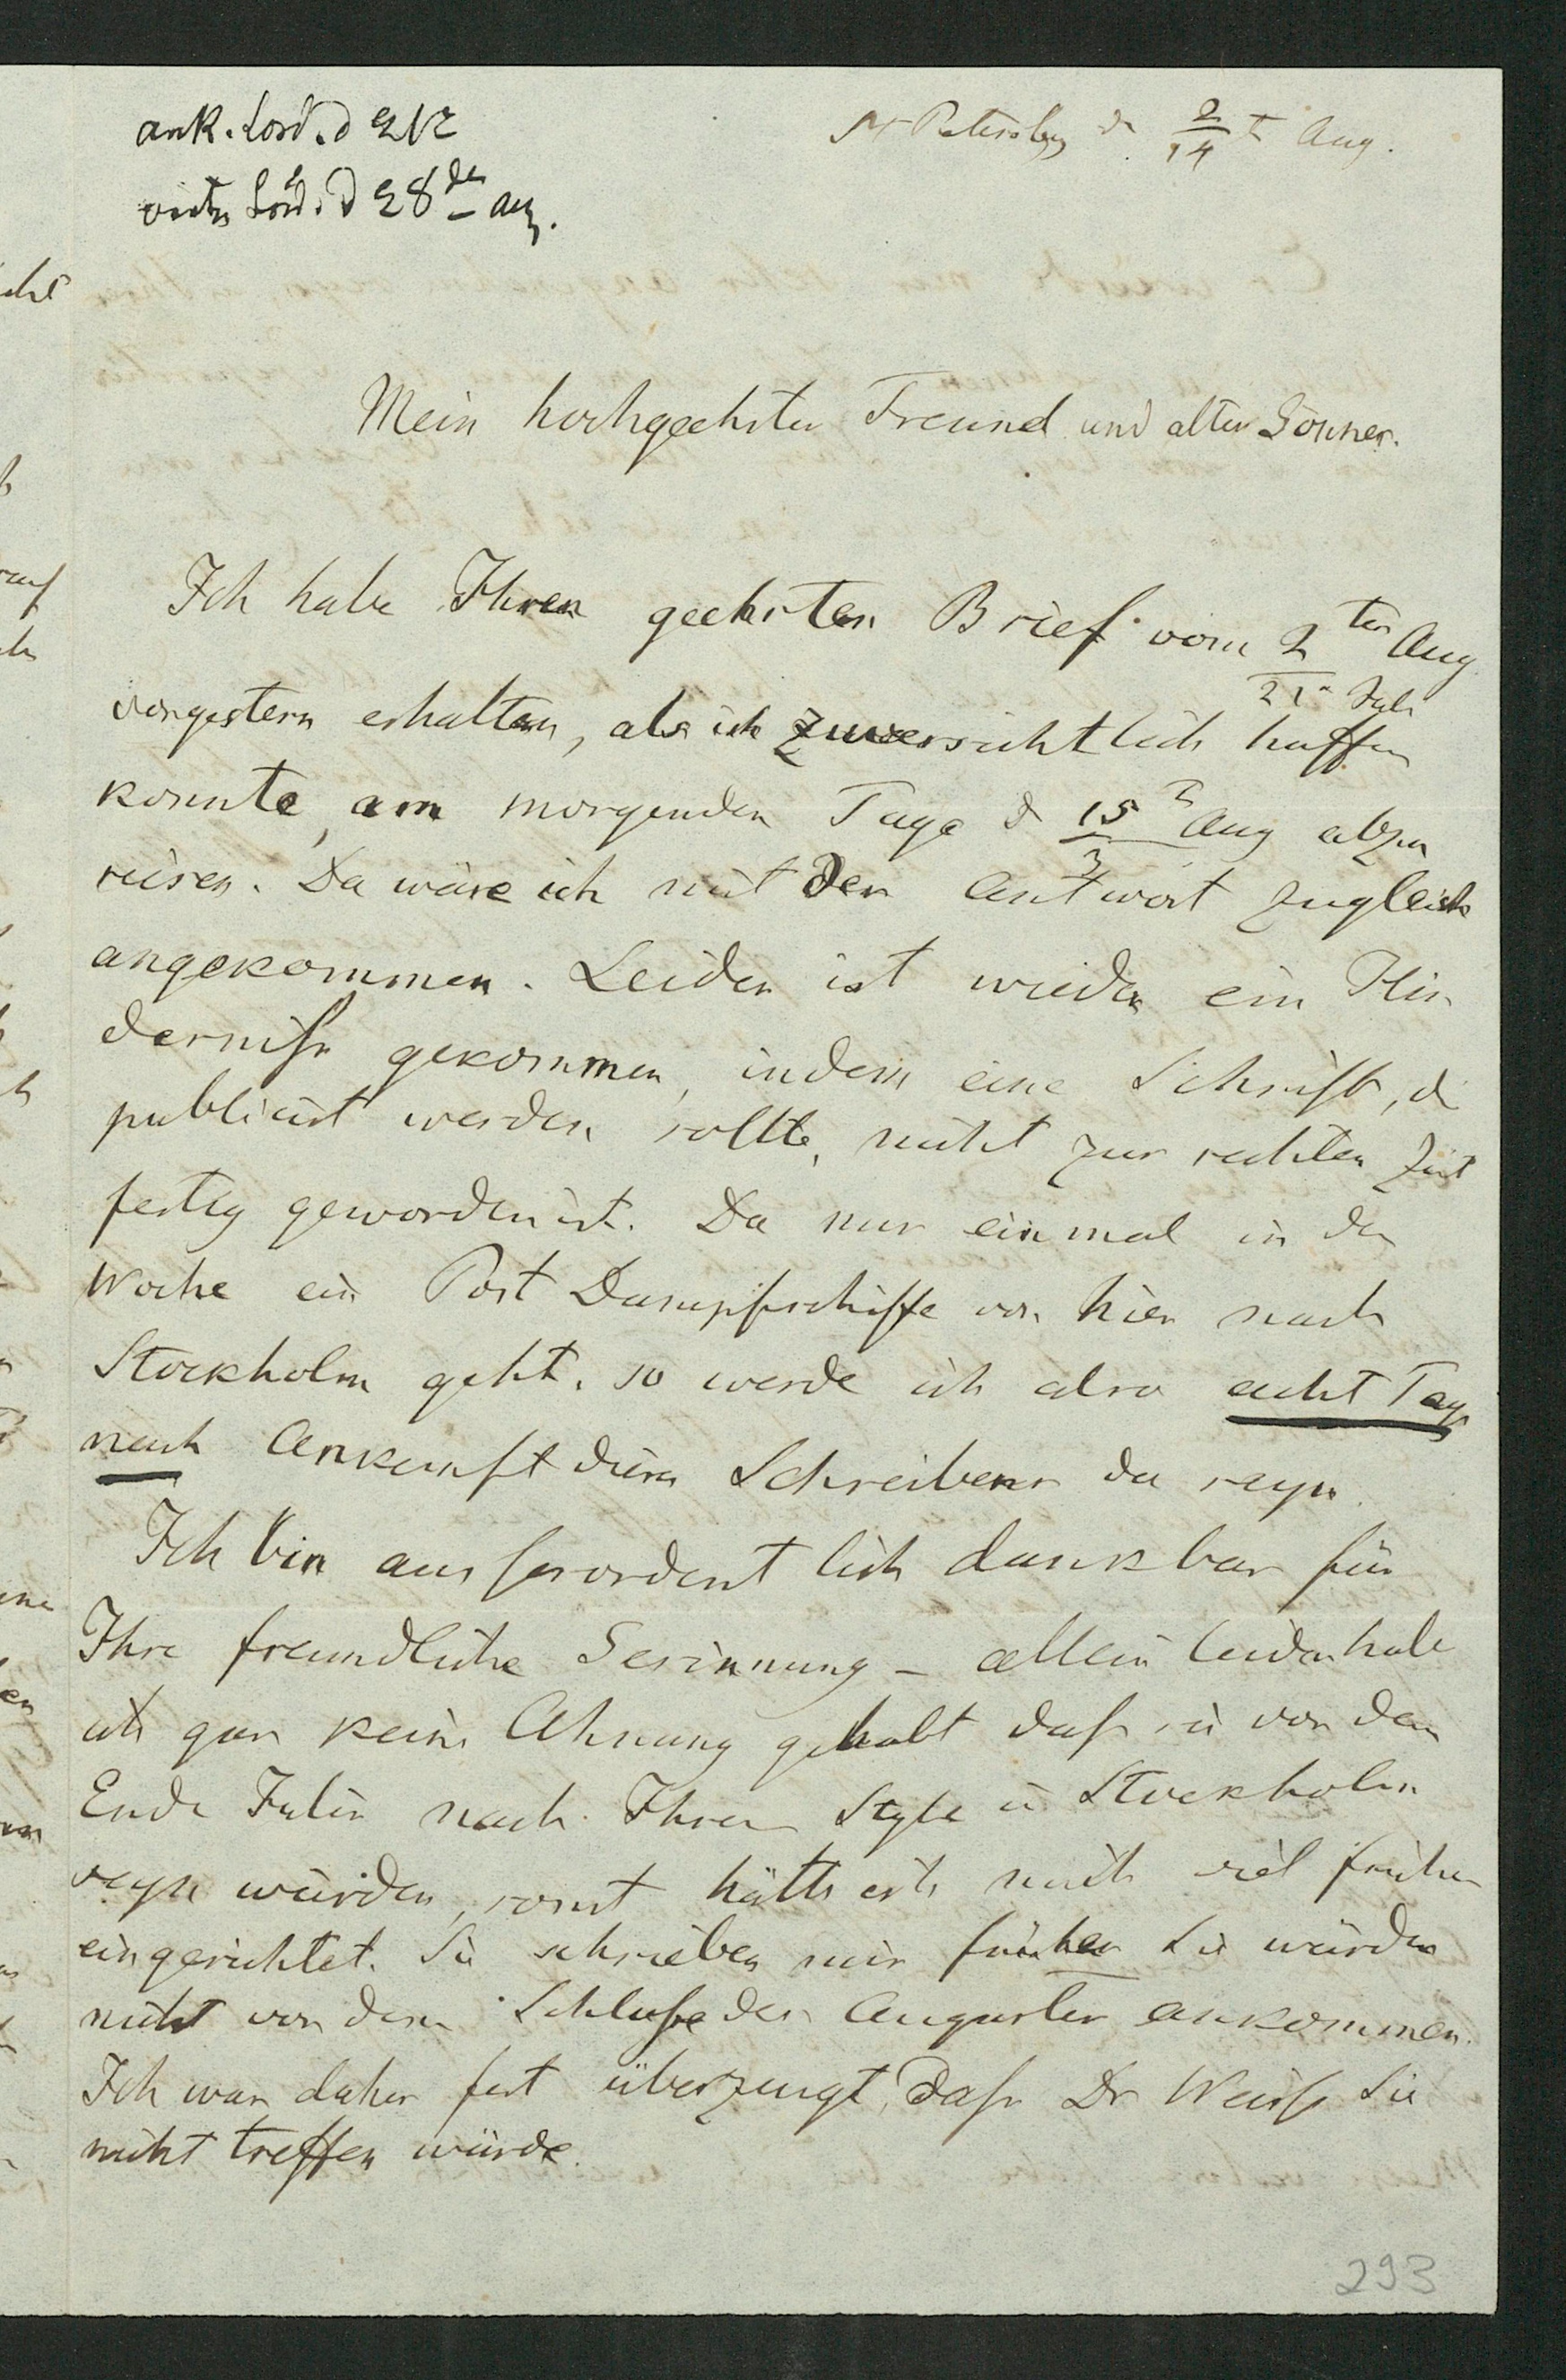 ank. Lörd. d 21
Lörd. d 28de aug.
St Petersburg d 2/14t Aug.
Mein hochgeehrter Freund und alter Gönner.
Ich habe Ihren geehrten Brief vom 2ten Aug
21 Juli
vorgestern erhalten, als ich zuversichtlich hoffen
konnte, am morgenden Tage d 15t Aug abzu
3
reisen. Da wäre ich mit der Antwort zugleich
angekommen. Leider ist wieder ein Hin
derniſs gekommen, indem eine Schrift, di
publicirt werden sollte, nicht zur rechten Zeit
fertig geworden ist. Da nur einmal in der
Woche ein Post Dampfschiffe von hier nach
Stockholm geht, so werde ich also acht Tage
nach Ankunft dieses Schreibens da seyn.
Ich bin auſserordentlich dankbar für
Ihre freundliche Gesinnung – allein leider habe
ich gar keine Ahnung gehabt daſs sie vor dem
Ende Julis nach Ihrem Style in Stockholm
seyn würden, sonst hätte ich mich viel früher
eingerichtet. Sie schrieben mir früher Sie würden
nicht vor dem Schluſse des Augustes ankommen.
Ich war daher fest überzeugt, daſs Dr Weiſse Sie
nicht treffen würde.
293